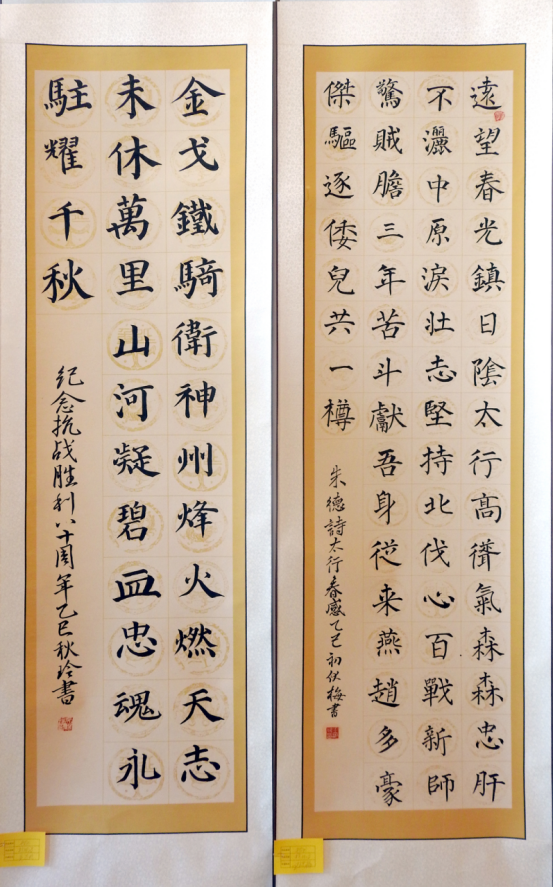 遠望春光鎮日陰太行高聳氣森森忠肝
不灑中原淚壯志堅持北伐心百戰新師
驚賊膽三年苦斗獻吾身從来燕趙多豪
傑驅逐倭兒共一樽
朱德詩太行春感乙巳初伏梅書
金戈鐵騎衛神州烽火燃天志
未休萬里山河凝碧血忠魂永
駐耀千秋
纪念抗战胜利八十周年乙巳秋玲書